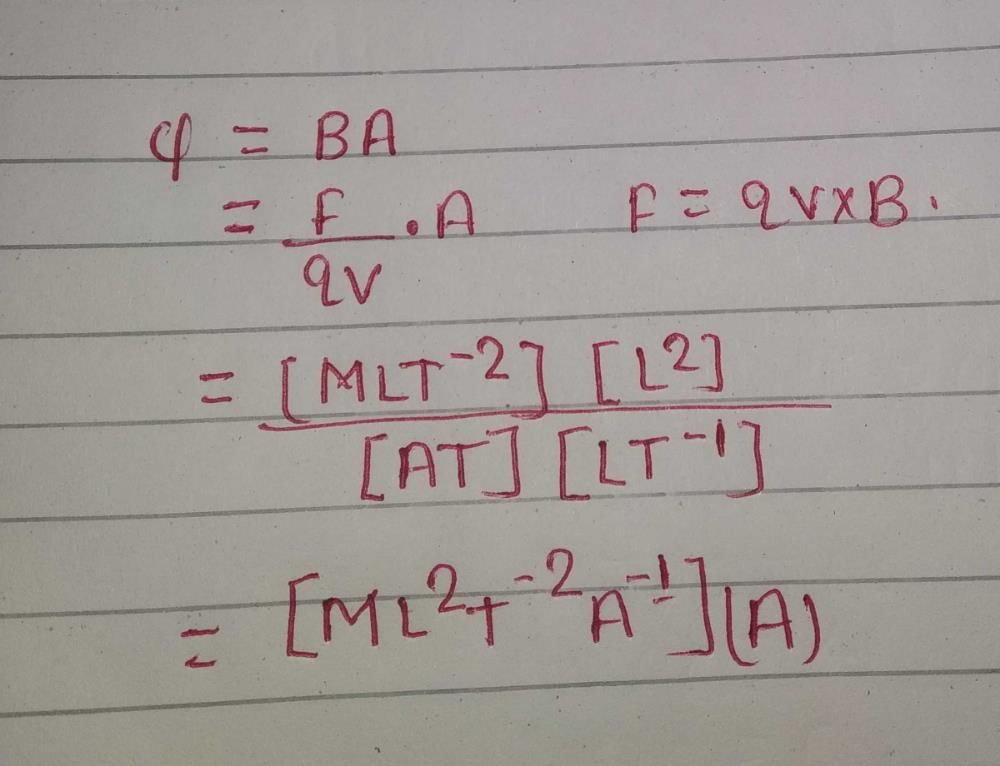 φ = BA
= F/qv . A    F = qv×B.
= [MLT⁻²] [L²] / [AT] [LT⁻¹]
= [ML²T⁻²A⁻¹](A)